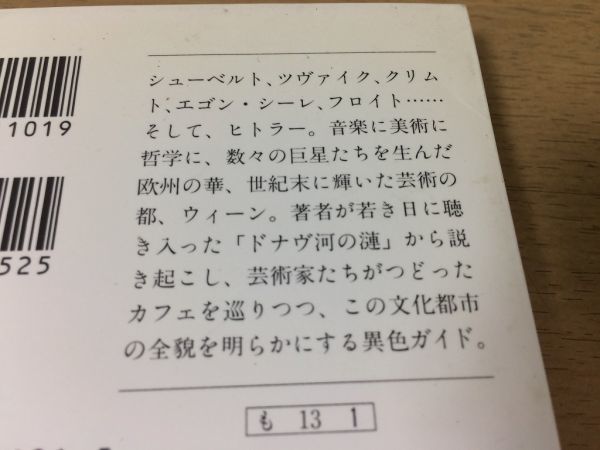 シューベルト、ツヴァイク、クリム
ト、エゴン・シーレ、フロイト……
そして、ヒトラー。音楽に美術に
哲学に、数々の巨星たちを生んだ
欧州の華、世紀末に輝いた芸術の
都、ウィーン。著者が若き日に聴
き入った「ドナヴ河の漣」から説
き起こし、芸術家たちがつどった
カフェを巡りつつ、この文化都市
の全貌を明らかにする異色ガイド。
も 13 1
1019
525